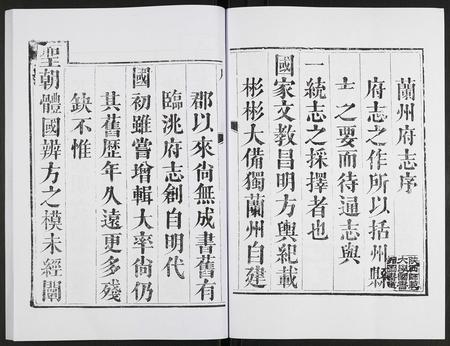 蘭州府志序
府志之作所以括州縣
士之要而待通志與
一統志之採擇者也
國家文教昌明方輿紀載
彬彬大備獨蘭州自建
郡以來尙無成書舊有
臨洮府志創自明代
國初雖嘗增輯大率尙仍
其舊歷年久遠更多殘
缺不惟
聖朝體國辨方之模未經闡